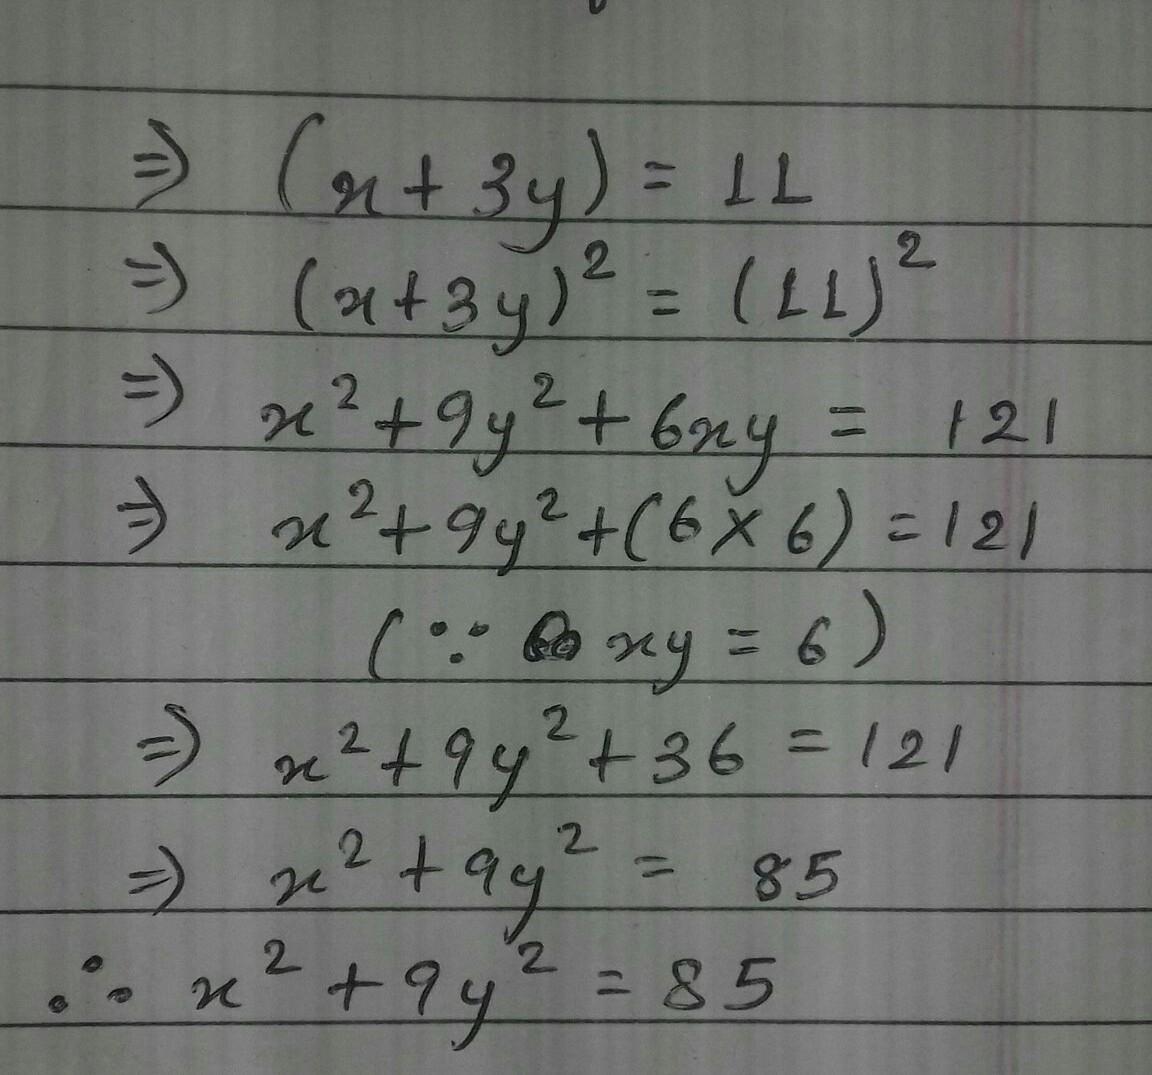 ⇒ (x + 3y) = 11
⇒ (x+3y)² = (11)²
⇒ x² + 9y² + 6xy = 121
⇒ x² + 9y² + (6 × 6) = 121
(∵ xy = 6)
⇒ x² + 9y² + 36 = 121
⇒ x² + 9y² = 85
∴ x² + 9y² = 85